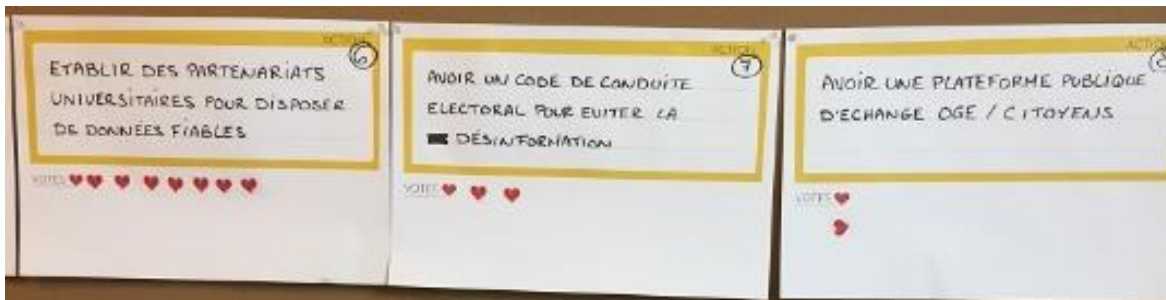 ACTION
6
ETABLIR DES PARTENARIATS
UNIVERSITAIRES POUR DISPOSER
DE DONNÉES FIABLES
VOTES
ACTION
7
AVOIR UN CODE DE CONDUITE
ELECTORAL POUR EVITER LA
DÉSINFORMATION
VOTES
ACTION
AVOIR UNE PLATEFORME PUBLIQUE
D'ECHANGE OGE / CITOYENS
VOTES